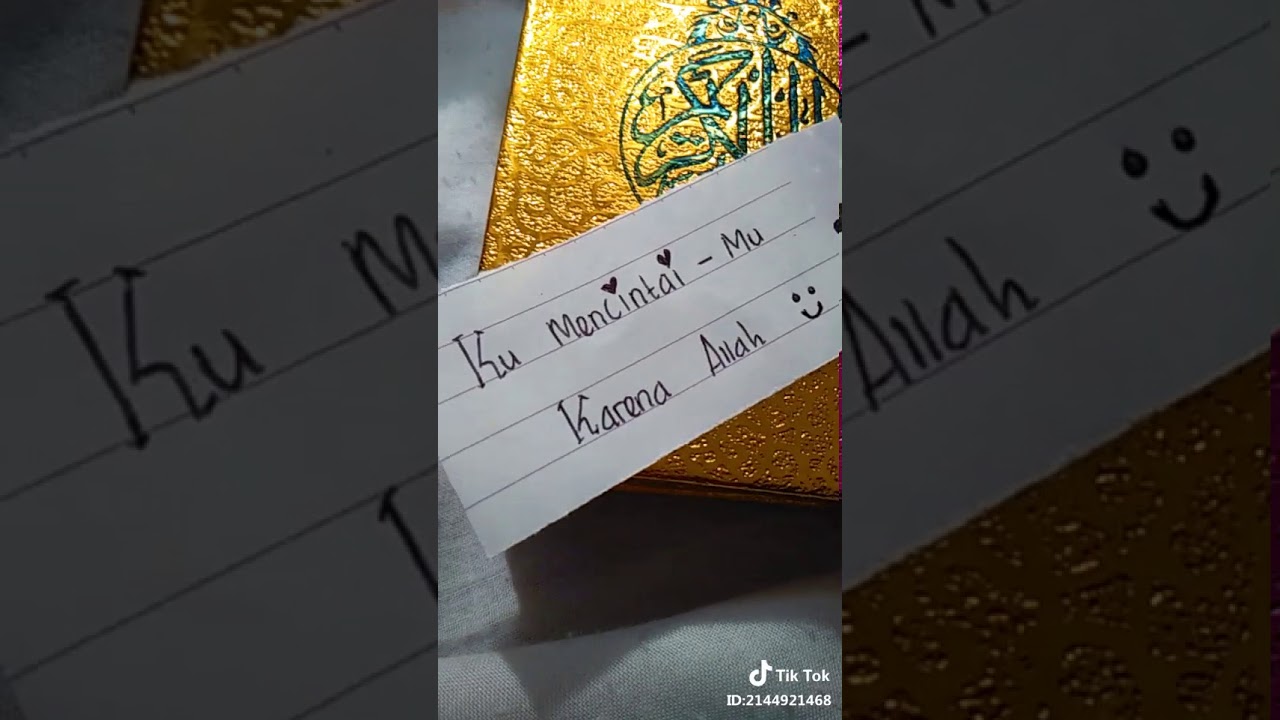 Ku Mencintai - Mu
Karena Allah
Tik Tok
ID:2144921468